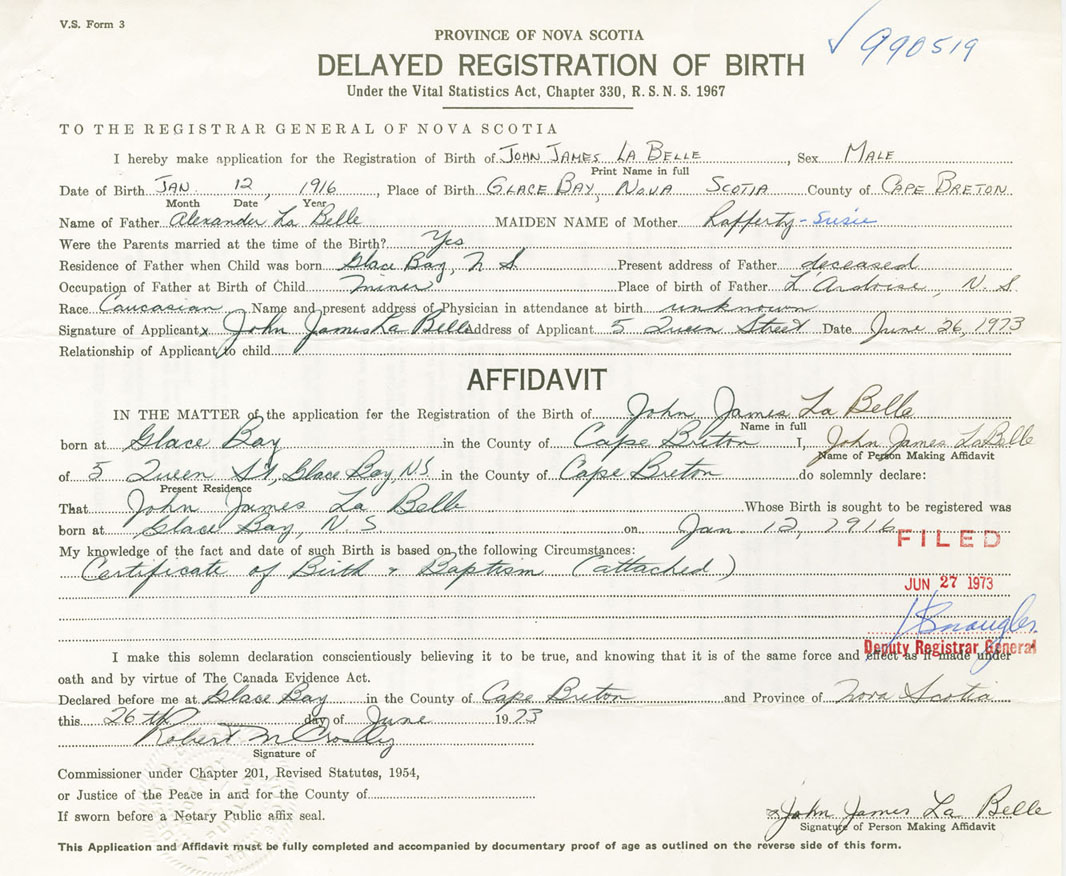 V.S. Form 3
PROVINCE OF NOVA SCOTIA
✓990519
DELAYED REGISTRATION OF BIRTH
Under the Vital Statistics Act, Chapter 330, R.S.N.S. 1967
TO THE REGISTRAR GENERAL OF NOVA SCOTIA
I hereby make application for the Registration of Birth of JOHN JAMES LA BELLE, Sex MALE
Print Name in full
Date of Birth JAN. 12, 1916, Place of Birth GLACE BAY, NOVA SCOTIA County of CAPE BRETON
Month Date Year
Name of Father Alexander La Belle MAIDEN NAME of Mother Rafferty-Susie
Were the Parents married at the time of the Birth? Yes
Residence of Father when Child was born Glace Bay, N S Present address of Father deceased
Occupation of Father at Birth of Child miner Place of birth of Father L'Ardoise, N. S.
Race Caucasian Name and present address of Physician in attendance at birth unknown
Signature of Applicant x John James La Belle Address of Applicant 5 Queen Street Date June 26, 1973
Relationship of Applicant to child
AFFIDAVIT
IN THE MATTER of the application for the Registration of the Birth of John James La Belle
Name in full
born at Glace Bay in the County of Cape Breton I, John James LaBelle
Name of Person Making Affidavit
of 5 Queen St, Glace Bay, NS in the County of Cape Breton do solemnly declare:
Present Residence
That John James La Belle Whose Birth is sought to be registered was
born at Glace Bay, N S on Jan 12, 1916
FILED
My knowledge of the fact and date of such Birth is based on the following Circumstances:
Certificate of Birth & Baptism (attached)
JUN 27 1973
Deputy Registrar General
I make this solemn declaration conscientiously believing it to be true, and knowing that it is of the same force and effect as if made under
oath and by virtue of The Canada Evidence Act.
Declared before me at Glace Bay in the County of Cape Breton and Province of Nova Scotia
this 26th day of June 1973
Robert M
Signature of
Commissioner under Chapter 201, Revised Statutes, 1954,
or Justice of the Peace in and for the County of
If sworn before a Notary Public affix seal.
x John James La Belle
Signature of Person Making Affidavit
This Application and Affidavit must be fully completed and accompanied by documentary proof of age as outlined on the reverse side of this form.